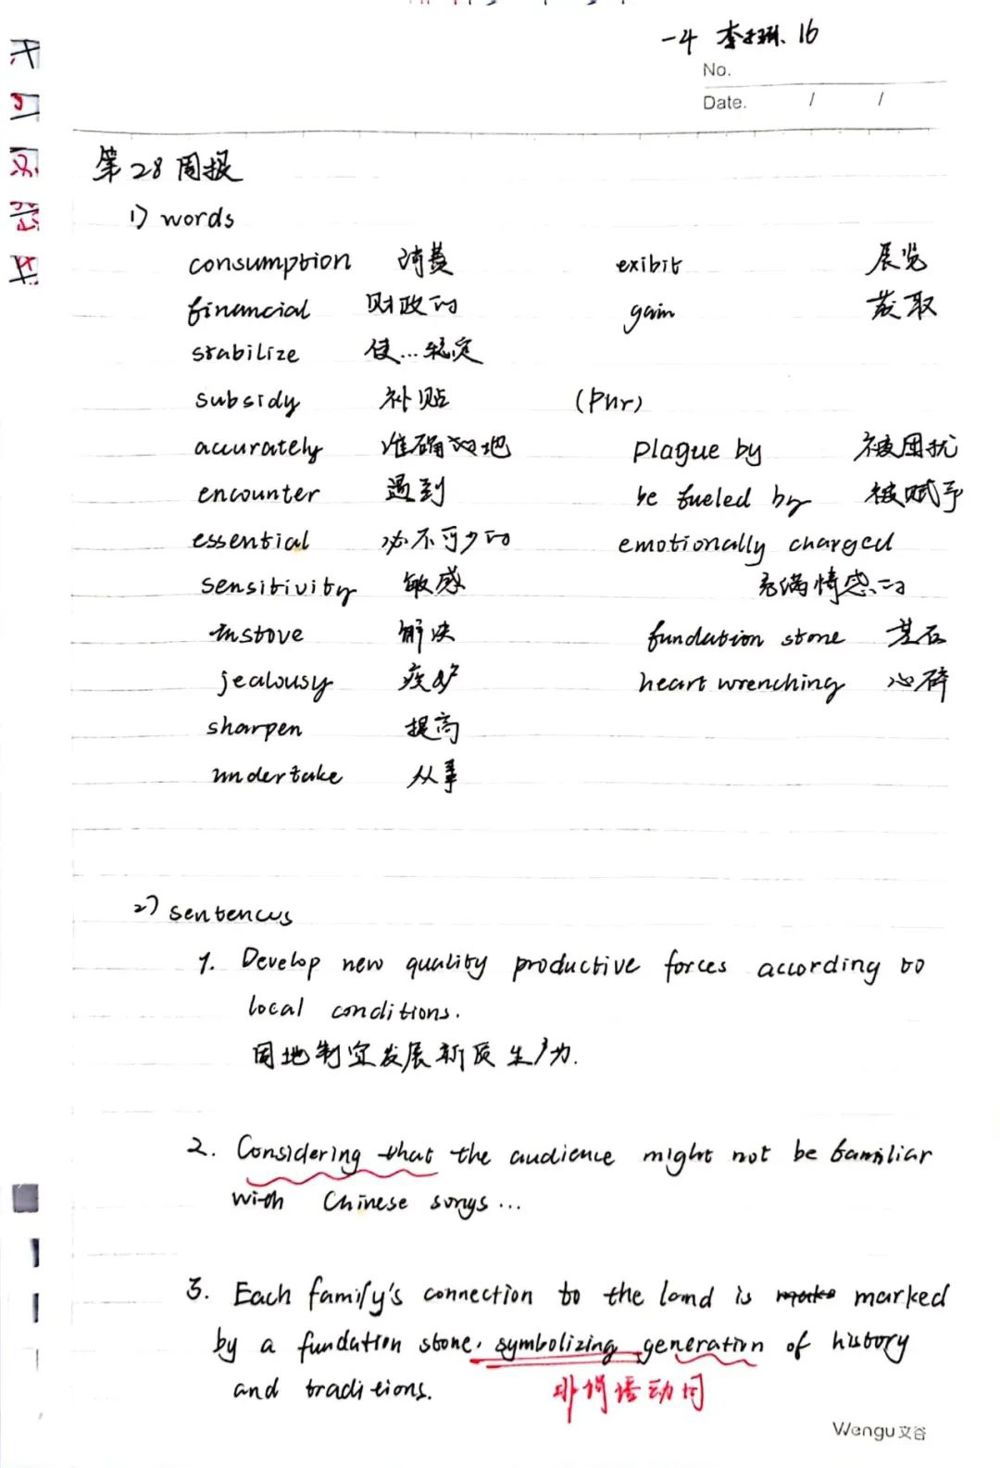 一4 李 16
No.
Date. / /
第28周报
1) words
consumption 消费 exibit 展览
financial 财政的 gain 获取
stabilize 使…稳定
subsidy 补贴 (Phr)
accurately 准确地 plague by 被困扰
encounter 遇到 be fueled by 被赋予
essential 必不可少的 emotionally charged
sensitivity 敏感 充满情感的
解决 fundation stone 基石
jealousy 疾妒 heart wrenching 心碎
sharpen 提高
undertake 从事
2) sentences
1. Develop new quality productive forces according to
local conditions.
因地制宜发展新质生产力.
2. Considering that the audience might not be familiar
with Chinese songs...
3. Each family's connection to the land is make marked
by a fundation stone, symbolizing generation of history
and traditions. 非谓语动词
Wengu文谷